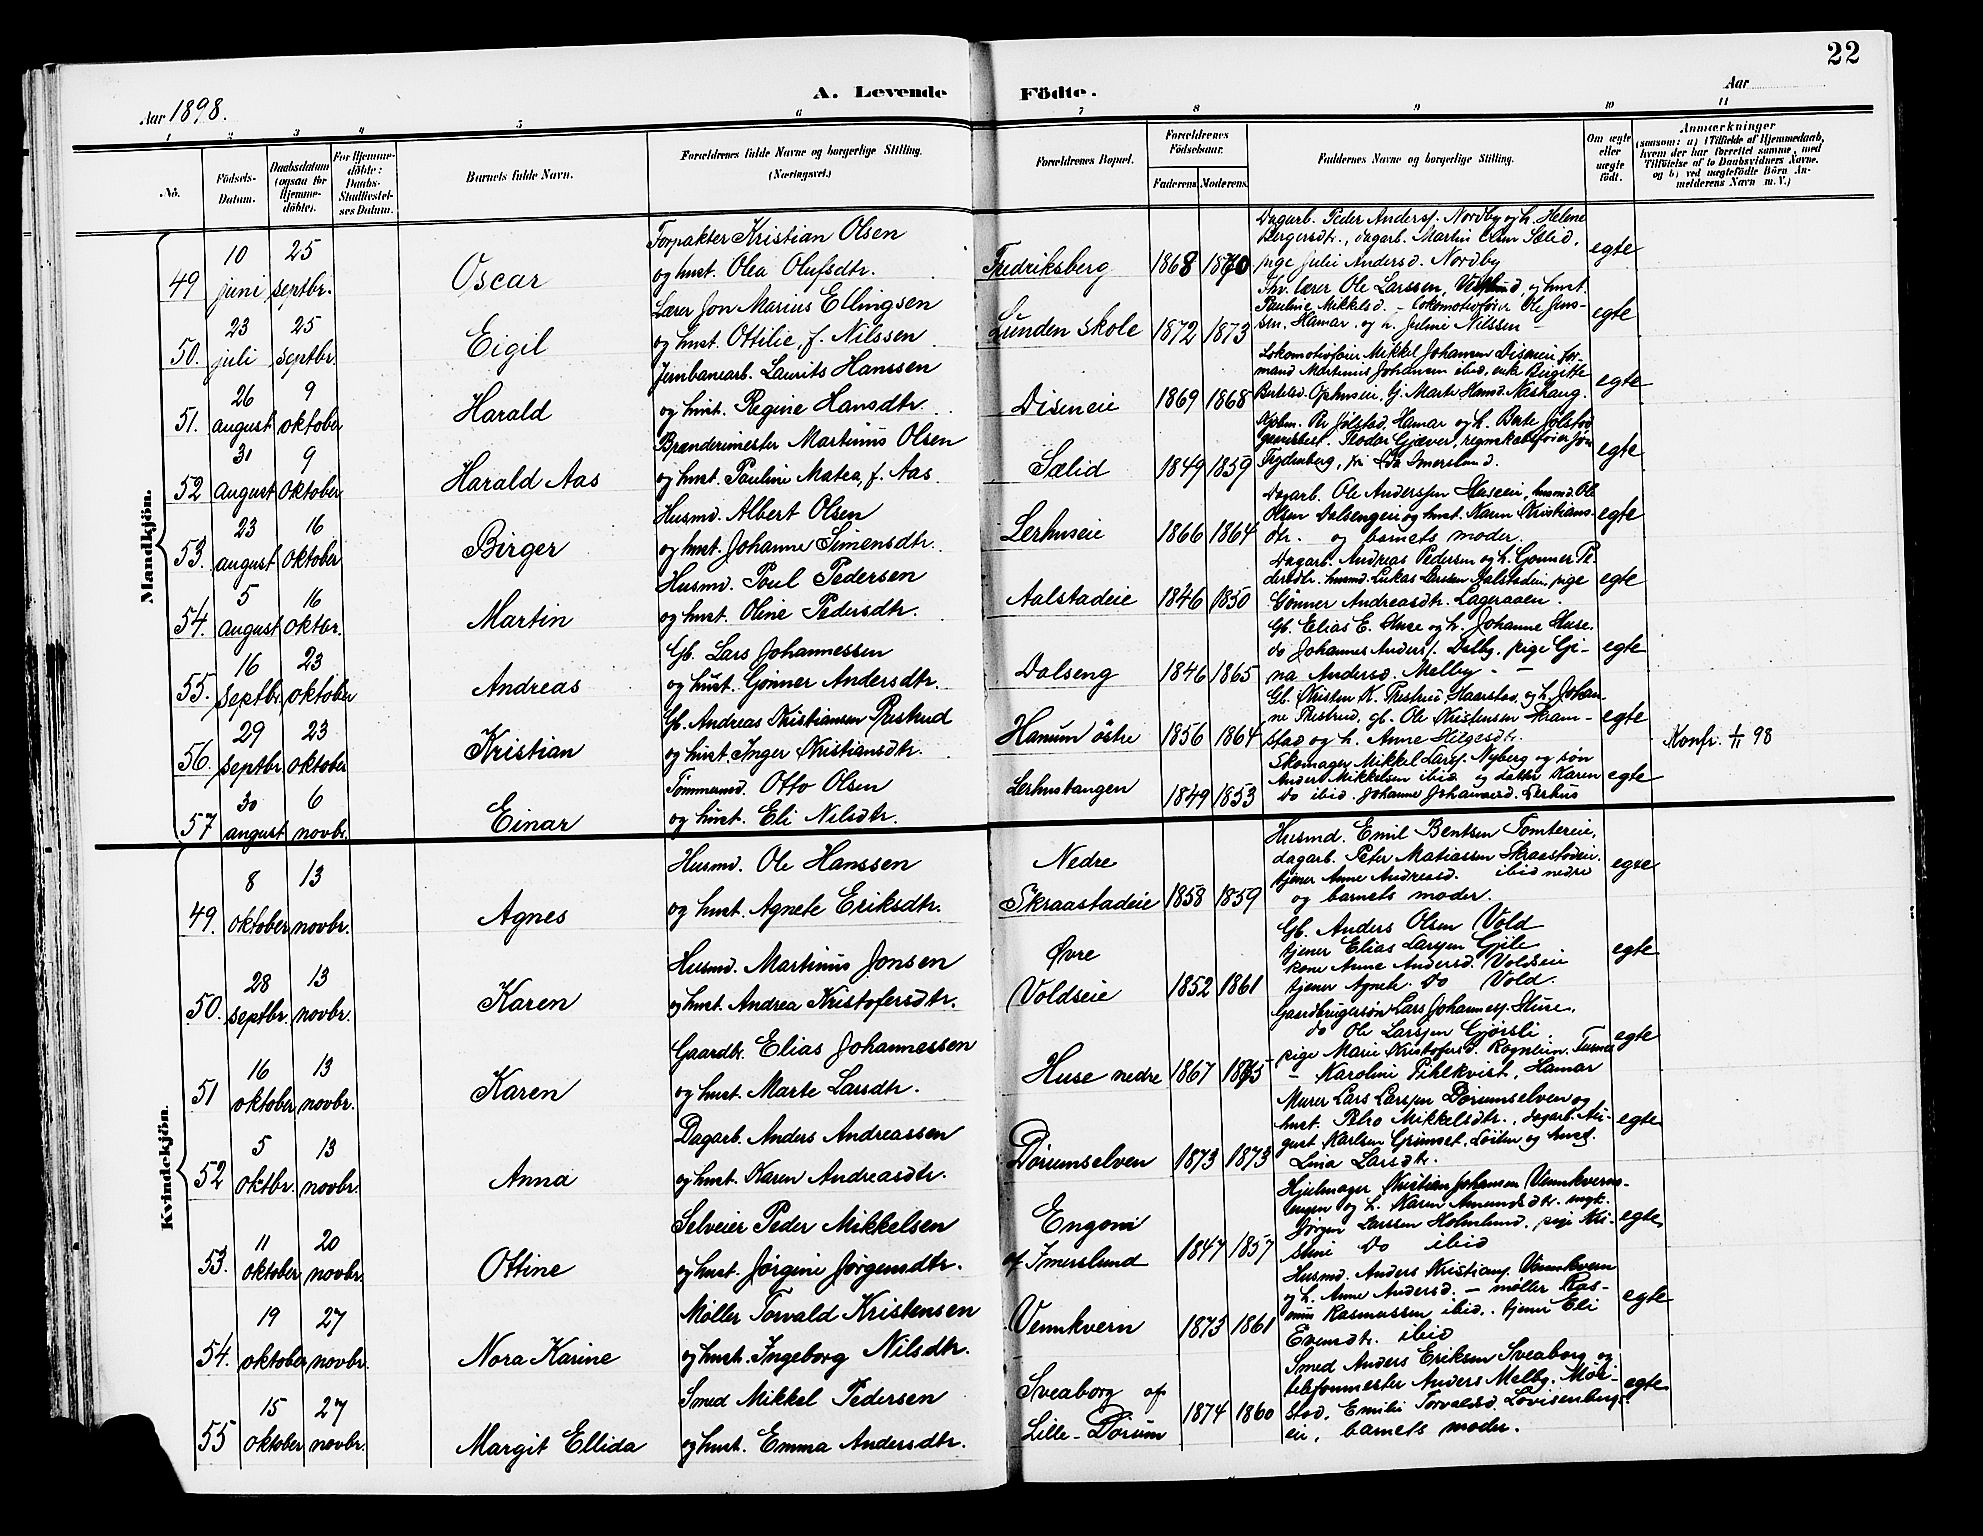 22
Aar 1898.
A. Levende Födte.
Aar
1 2 3 4 5 6 7 8 9 10 11
No.
Födsels-Datum.
Daabsdatum (ogsaa for Hjemmedöbte).
For Hjemmedöbte: Daabs-Stadfæstelses Datum.
Barnets fulde Navn.
Forældrenes fulde Navne og borgerlige Stilling. (Næringsvei.)
Forældrenes Bopæl.
Forældrenes Födselsaar.
Faderens. Moderens.
Faddernes Navne og borgerlige Stilling.
Om ægte eller uægte födt.
Anmærkninger (saasom: a) i Tilfælde af Hjemmedaab, hvem der har forrettet samme, med Tilföielse af to Daabsvidners Navne, og b) ved uægtefödte Börn Anmelderens Navn m. V.)
Mandkjön.
49 10 juni 25 septbr. Oscar
Forpakter Kristian Olsen
og hust. Olea Olufsdtr.
Fredriksberg 1868 1870
Dagarb. Peder Anders. Nordby og h. Helene
Bergersdtr., dagarb. Martin Olsen Sælid,
pige Julie Andersd. Nordby
egte
50. 23 juli 25 septbr. Eigil
Lærer Jon Marius Ellingsen
og hust. Ottilie, f. Nilssen
Lunden skole 1872 1873
lærer Ole Larssen, og hust.
Pauline Mikkelsd. – Lokomotivfører Ole Jens-
sen, Hamar, og h. Juline Nilssen –
egte
51. 26 august 9 oktober Harald
Jernbanearb. Laurits Hanssen
og hust. Regine Hansdtr.
Diseneie 1869 1868
Lokomotivfører Mikkel Johansen Diseneie, for-
mand Martinius Johansen ibid, enke Birgitte
Bertelsd. Ophuseie, Gj. Marte Hansd. Næshaug.
egte
52 31 august 9 oktober Harald Aas
Brænderimester Martinius Olsen
og hust. Pauline Matea, f. Aas
Sælid 1849 1859
Kjøbm. Per Jølstad, Hamar og h. Berte Jølstad
Teodor Gjæver, regnskabsfører Jon
Frydenberg, frk Imerslund.
egte
53. 23 august 16 oktober Birger
Husmd. Albert Olsen
og hust. Johanne Simensdtr.
Lerhuseie 1866 1864
Dagarb. Ole Anderssen Huseeie, husmd. Ole
Olsen Dalsengeie og hust. Karen Kristians-
dtr. – og barnets moder.
egte
54. 5 august 16 oktbr. Martin
Husmd. Poul Pedersen
og hust. Oline Pedersdtr.
Aalstadeie 1846 1850
Dagarb. Andreas Pedersen og h. Gønner Pe-
dersdtr. husmd. Lukas Larssen Jølstadeie, pige
Gønner Andreasdtr. Lageraaen.
egte
55. 16 septbr. 23 oktober Andreas
Gb. Lars Johannessen
og hust. Gønner Andersdtr.
Dalseng 1846 1865
Gb. Elias E. Huse og h. Johanne Huse.
do Johannes Anders. Dalby. pige Gi-
na Andersd. Melby –
egte
56. 29 septbr 23 oktober Kristian
Gb. Andreas Kristiansen Prestrud
og hust. Inger Kristiansdtr.
Hanum östre 1856 1864
Gb. Kristen K. Prestrud Haarstad, og h. Johan-
ne Prestrud, gb. Ole Kristensen Skram-
stad og h. Anne Helgesdtr.
egte
Konfr. 4/11 98
57 30 august 6 novbr. Einar
Tömmermd. Otto Olsen
og hust. Eli Nilsdtr.
Lerhustangen 1849 1853
Skomager Mikkel Lars. Nyberg og søn
Anders Mikkelsen ibid og datter Karen
Do ibid. Johanne Johannesd. Lerhus
egte
Kvindekjön.
49. 8 oktober 13 novbr. Agnes
Husmd. Ole Hanssen
og hust. Agnete Eriksdtr.
Nedre
Skraastadeie 1858 1859
Husmd. Emil Bentsen Tomtereie,
dagarb. Peter Matiassen Skraastadeie.
tjener Anne Andreasd. ibid nedre
og barnets moder.
egte
50. 28 septbr. 13 novbr. Karen
Husmd. Martinius Jonsen
og hust. Andrea Kristofersdtr.
Øvre
Voldseie 1852 1861
Gb. Anders Olsen Vold
tjener Elias Larssen Gjile
kone Anne Andersd. Voldseie
tjener Agnete Do Vold.
egte
51 16 oktober 13 novbr. Karen
Gaardbr. Elias Johannessen
og hust. Marte Larsdtr.
Huse nedre 1867 1875
Gaardbrugersøn Lars Johanness. Huse.
do Ole Larssen Gjørsli
pige Marie Kristofersd. Rognlien. Furnes
– Karoline Pihlkvist, Hamar
egte
52 5 oktbr. 13 novbr. Anna
Dagarb. Anders Andreassen
og hust. Karen Andreasdtr.
Dørumselven 1873 1873
Murer Lars Larssen Dørumselven og
hust. Petra Mikkelsdtr., dagarb. Au-
gust Karlsen Grimset. Løiten og hust.
Lina Larsdtr.
egte
53. 11 oktober 20 novbr. Ottine
Selveier Peder Mikkelsen
og hust. Jørgine Jørgensdtr.
Engom
af Imerslund 1847 1857
Hjulmager Kristian Johansen Vennkverns-
engen og h. Karen Amundsdtr. ungk.
Jørgen Larssen Holmlund. pige Kri-
stine Do ibid
egte
54. 19 oktober 27 novbr. Nora Karine
Møller Torvald Kristensen
og hust. Ingeborg Nilsdtr.
Vennkvern 1873 1861
Husmd. Anders Kristians. Vennkvern
og h. Anne Andersd. – møller Ras-
mus Rasmussen ibid. tjener Eli
Evensdtr. ibid
egte
55 15 oktober 27 novbr. Margit Ellida
Smed Mikkel Pedersen
og hust. Emma Andersdtr.
Sveaborg af
Lille-Dørum 1874 1860
Smed Anders Eriksen Sveaborg og
telefonmester Anders Melby. Mør-
stad, Emilie Torvaldsd. Lovisenbergs-
eie, barnets moder.
egte